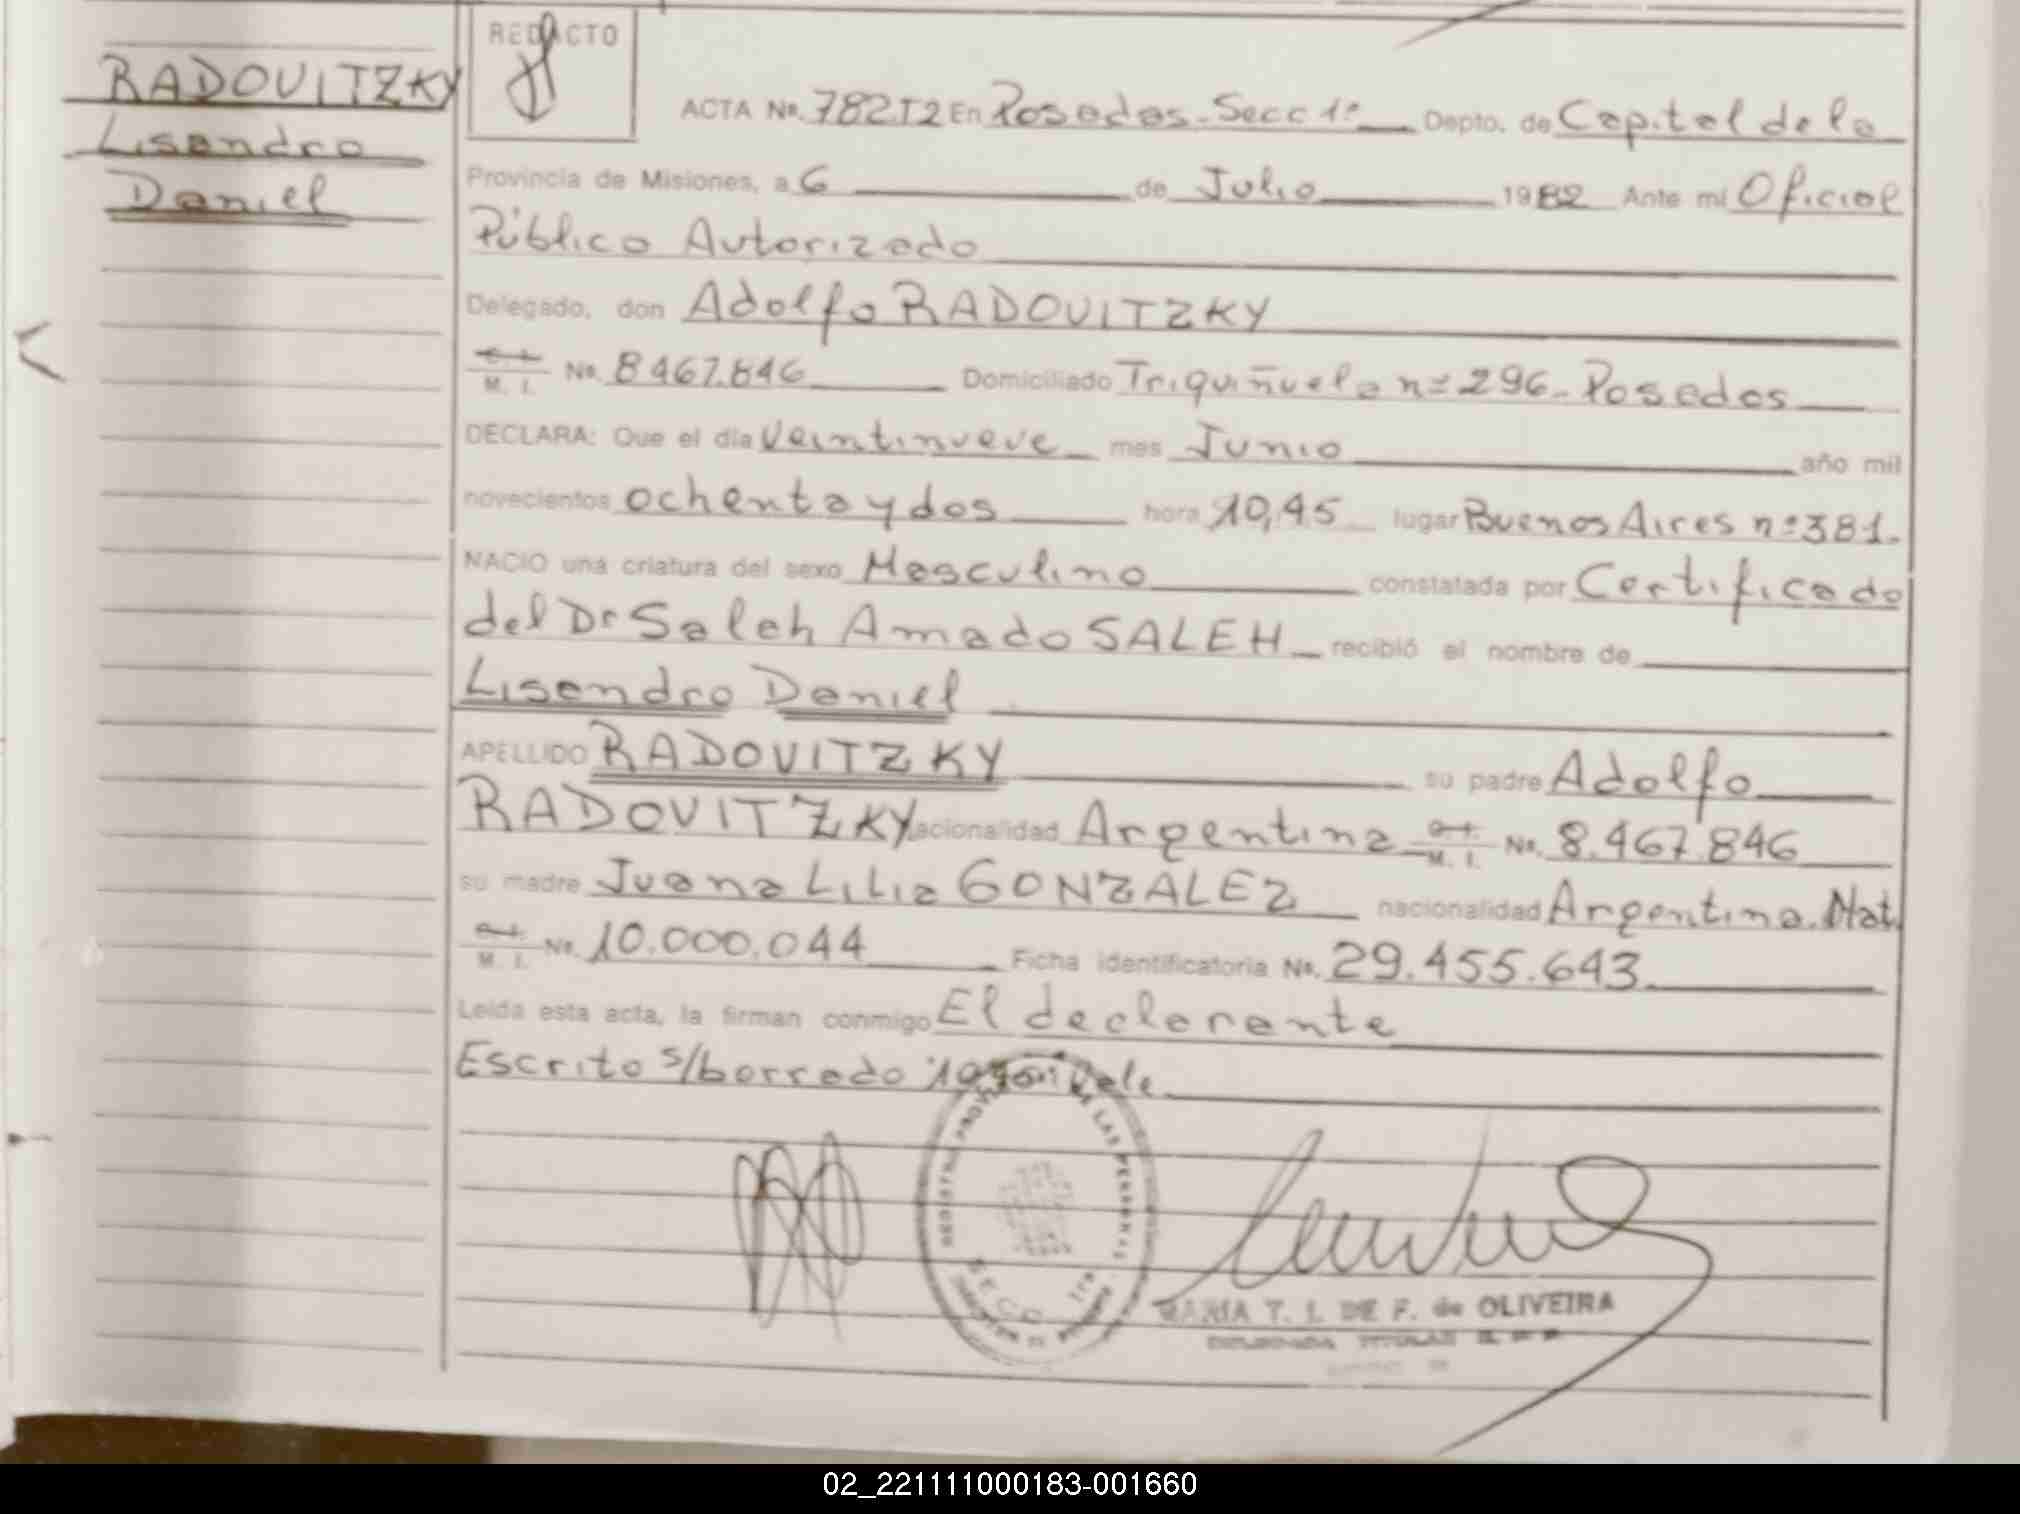 RADOVITZKY
Lisandro
Daniel
REDACTO
ACTA No. 782T2 En Posadas. Secc 1ª Depto. de Capital de la
Provincia de Misiones, a 6 de Julio 1982 Ante mi Oficial
Público Autorizado
Delegado, don Adolfo RADOVITZKY
M. I. No. 8467.846 Domiciliado Triquiñuela nº 296. Posadas
DECLARA: Que el día Veintinueve mes Junio año mil
novecientos ochenta y dos hora 10,45 lugar Buenos Aires nº 381.
NACIO una criatura del sexo Masculino constatada por Certificado
del Dr Saleh Amado SALEH recibió el nombre de
Lisandro Daniel
APELLIDO RADOVITZKY su padre Adolfo
RADOVITZKY nacionalidad Argentina M. I. No. 8.467.846
su madre Juana Lilia GONZALEZ nacionalidad Argentina. Mat.
M. I. No. 10.000.044 Ficha identificatoria No. 29.455.643
Leída esta acta, la firman conmigo El declarante
Escrito s/borrado Vale
LAS PERSONAS
SECC 1ra
MARIA T. I. DE F. de OLIVEIRA
02_221111000183-001660